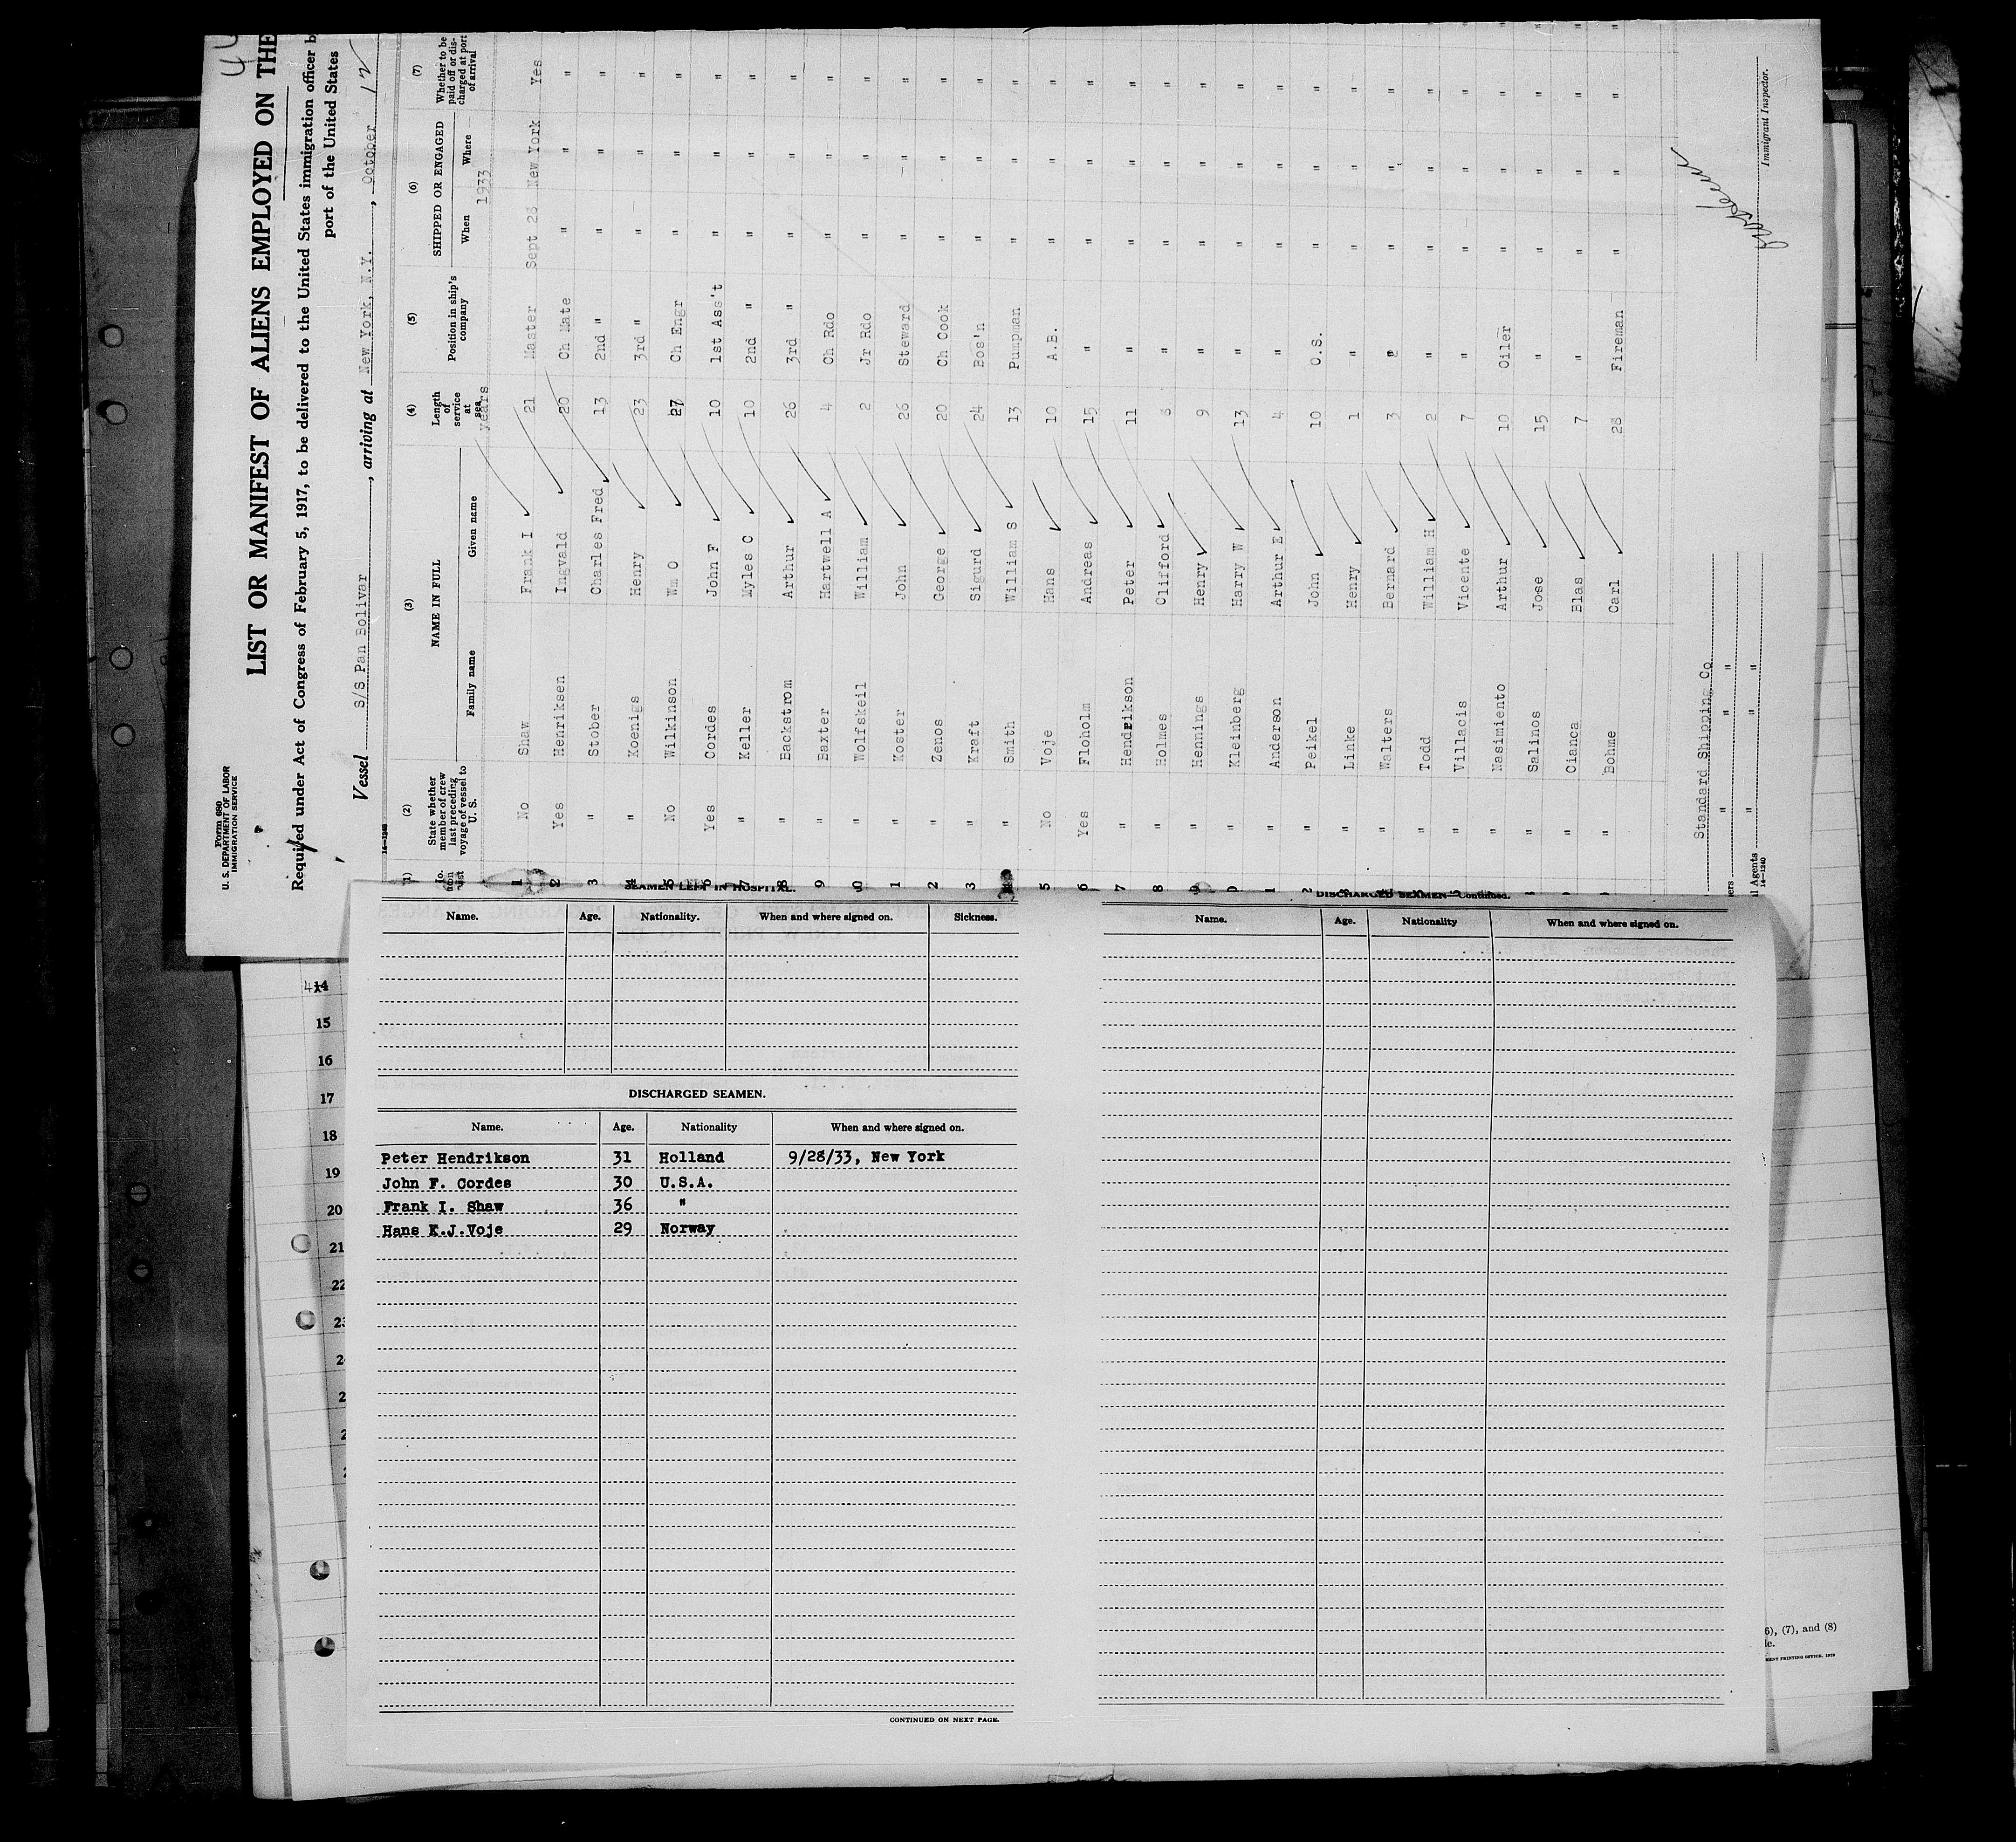 LIST OR MANIFEST OF ALIENS EMPLOYED ON THE
Form 680
U. S. DEPARTMENT OF LABOR
IMMIGRATION SERVICE
Required under Act of Congress of February 5, 1917, to be delivered to the United States immigration officer b
port of the United States
Vessel S/S Pan Bolivar, arriving at New York, N.Y., October 12
14-1240
(1) (2) (3) (4) (5) (6) (7)
State whether member of crew last preceding voyage of vessel to U. S.
NAME IN FULL
Family name Given name
Length of service at sea
years
Position in ship's company
SHIPPED OR ENGAGED
When Where
1933
Whether to be paid off or discharged at port of arrival
1 No Shaw Frank I 21 Master Sept 28 New York Yes
2 Yes Henriksen Ingvald 20 Ch Mate " " "
3 " Stober Charles Fred 13 2nd " " " "
4 " Koenigs Henry 23 3rd " " " "
5 No Wilkinson Wm O 27 Ch Engr " " "
6 Yes Cordes John F 10 1st Ass't " " "
7 " Keller Myles C 10 2nd " " " "
8 " Backstrom Arthur 26 3rd " " " "
9 " Baxter Hartwell A 4 Ch Rdo " " "
0 " Wolfskeil William 2 Jr Rdo " " "
1 " Koster John 26 Steward " " "
2 " Zenos George 20 Ch Cook " " "
3 " Kraft Sigurd 24 Bos'n " " "
" Smith William S 13 Pumpman " " "
5 No Voje Hans 10 A.B. " " "
6 Yes Floholm Andreas 15 " " " "
7 " Hendrikson Peter 11 " " " "
8 " Holmes Clifford 8 " " " "
9 " Hennings Henry 9 " " " "
0 " Kleinberg Harry W 13 " " " "
1 " Anderson Arthur E 4 " " " "
2 " Peikel John 10 O.S. " " "
" Linke Henry 1 " " " "
" Walters Bernard 3 " " " "
" Todd William H 2 " " " "
" Villacis Vicente 7 " " " "
" Nasimiento Arthur 10 Oiler " " "
" Salinos Jose 15 " " " "
" Cianca Blas 7 " " " "
" Bohme Carl 28 Fireman " " "
Standard Shipping Co
" " "
" " "
l Agents
14-1240
Immigrant Inspector.
SEAMEN LEFT IN HOSPITAL.
Name. Age. Nationality. When and where signed on. Sickness.
DISCHARGED SEAMEN.
Name. Age. Nationality When and where signed on.
Peter Hendrikson 31 Holland 9/28/33, New York
John F. Cordes 30 U.S.A.
Frank I. Shaw 36 "
Hans K.J.Voje 29 Norway
CONTINUED ON NEXT PAGE.
DISCHARGED SEAMEN—Continued.
Name. Age. Nationality When and where signed on.
14
15
16
17
18
19
20
21
22
23
6), (7), and (8)
MENT PRINTING OFFICE.